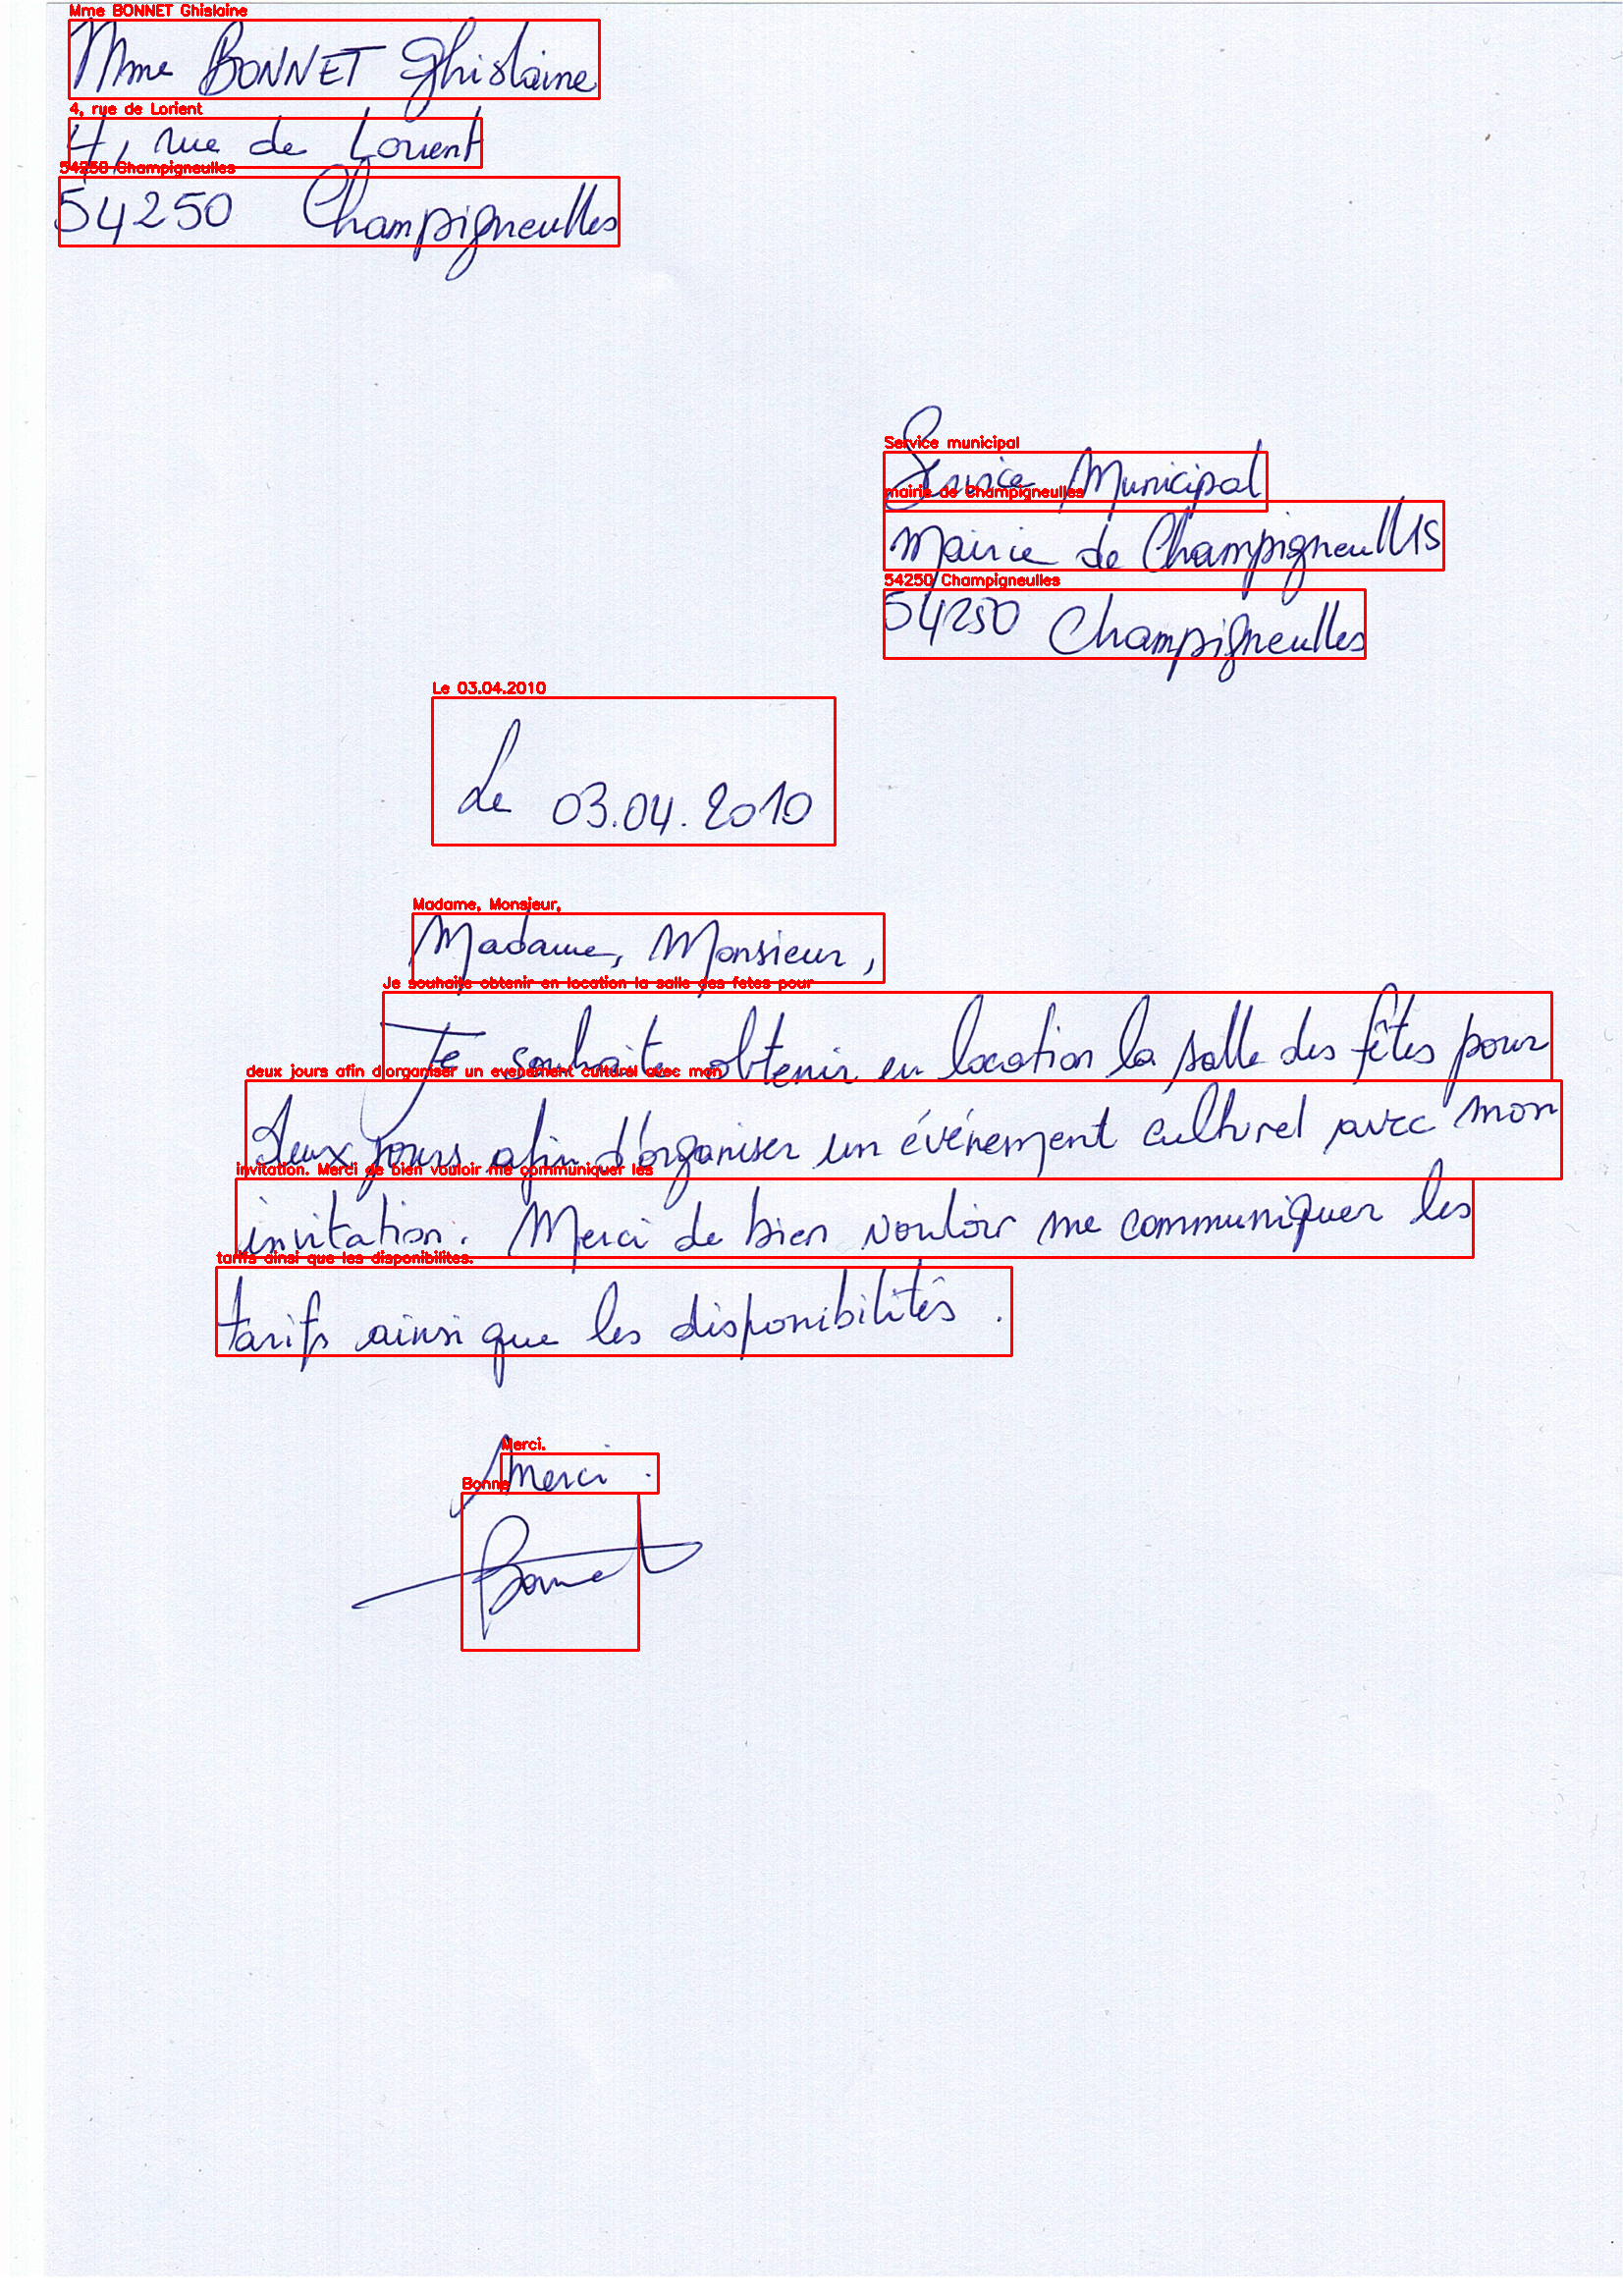 Mme BONNET Ghislaine
Mme BONNET Ghislaine
4, rue de Lorient
4, rue de Lorient
54250 Champigneulles
54250 Champigneulles
Service municipal
Service Municipal
mairie de Champigneulles
Mairie de Champigneulles
54250 Champigneulles
54250 Champigneulles
Le 03.04.2010
Le 03.04.2010
Madame, Monsieur,
Madame, Monsieur,
Je souhaite obtenir en location la salle des fetes pour
Je souhaite obtenir en location la salle des fêtes pour
deux jours afin d'organiser un evenement culturel avec mon
deux jours afin d'organiser un événement culturel avec mon
invitation. Merci de bien vouloir me communiquer les
invitation. Merci de bien vouloir me communiquer les
tarifs ainsi que les disponibilites.
tarifs ainsi que les disponibilités.
Merci.
Merci.
Bonne
Bonnet